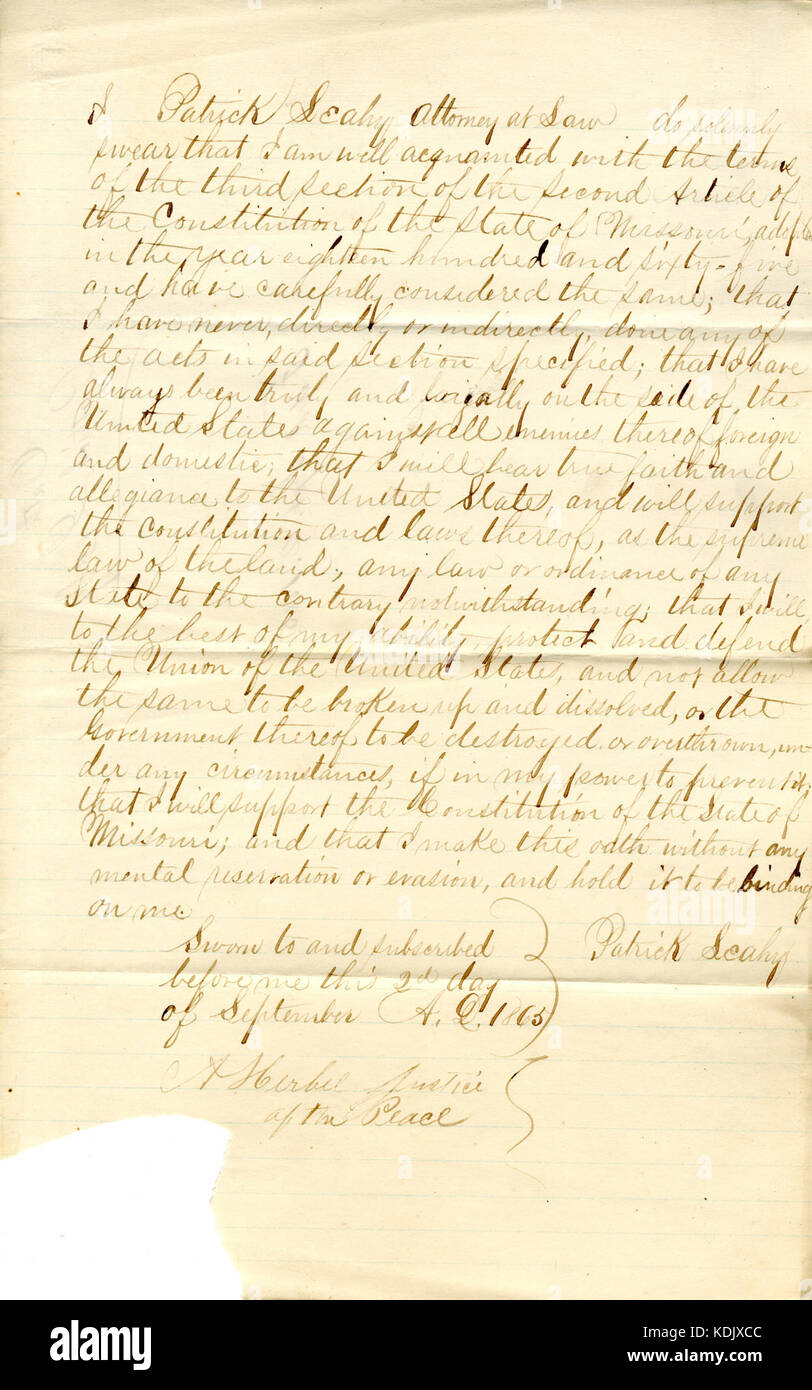 I Patrick Leahy attorney at Law do solemnly
swear that I am well acquainted with the terms
of the third section of the second Article of
the Constitution of the State of Missouri, adopted
in the year eighteen hundred and sixty-five
and have carefully considered the same; that
I have never, directly or indirectly, done any of
the acts in said section specified; that I have
always been truly and loyally on the side of the
United States against all enemies thereof foreign
and domestic; that I will bear true faith and
allegiance to the United States, and will support
the constitution and laws thereof, as the supreme
law of the land, any law or ordinance of any
State to the contrary notwithstanding; that I will,
to the best of my ability, protect and defend
the Union of the United States, and not allow
the same to be broken up and dissolved, or the
Government thereof to be destroyed or overthrown, un-
der any circumstances, if in my power to prevent it;
that I will support the Constitution of the State of
Missouri; and that I make this oath without any
mental reservation or evasion, and hold it to be binding
on me
Sworn to and subscribed
before me this 2d day
of September A.D. 1865
Patrick Leahy
A Herbel Justice
of the Peace
alamy
alamy
Image ID: KDJXCC
www.alamy.com